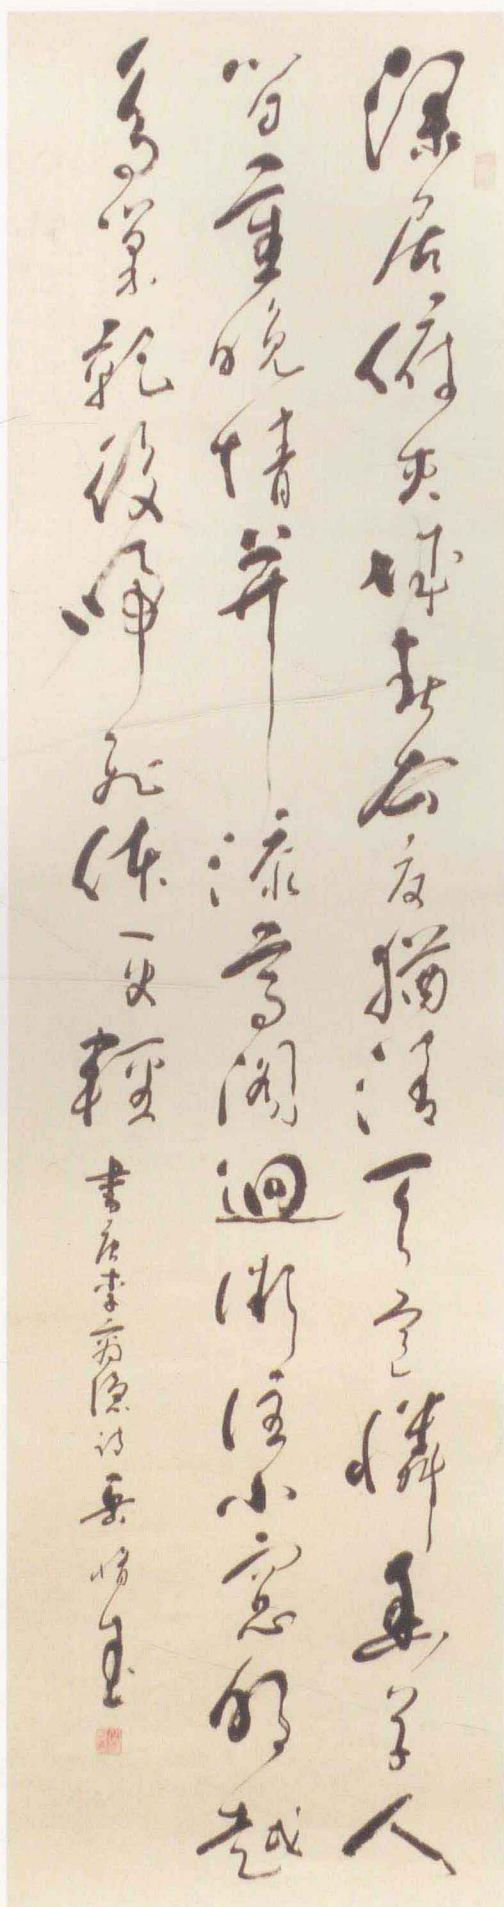 深居俯夾城春去夏猶清天意憐幽草人
間重晚晴并添高閣迥微注小窓明越
鳥巢乾後歸飛体更輕 書唐李商隱詩